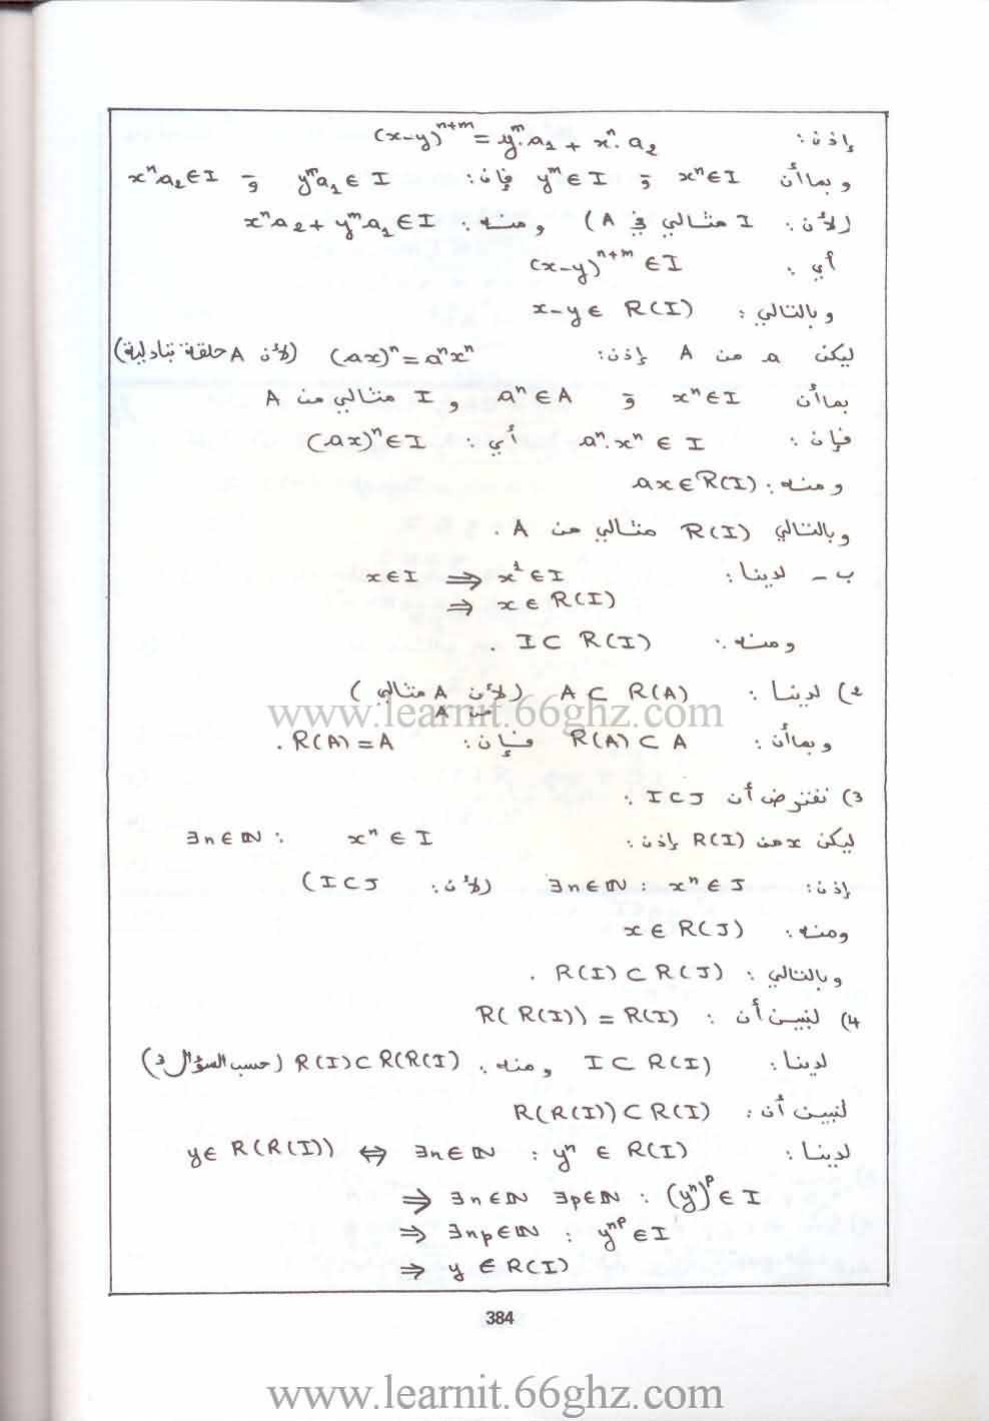 إذن: (x-y)^{n+m} = y^m.a_1 + x^n.a_2
وبما أن x^n ∈ I و y^m ∈ I فإن: y^m a_1 ∈ I و x^n a_2 ∈ I
(لأن: I مثالي في A) ومنه: x^n a_2 + y^m a_1 ∈ I
أي: (x-y)^{n+m} ∈ I
وبالتالي: x-y ∈ R(I)
ليكن a من A إذن: (ax)^n = a^n x^n (لأن A حلقة تبادلية)
بما أن x^n ∈ I و a^n ∈ A و I مثالي من A
فإن: a^n.x^n ∈ I أي: (ax)^n ∈ I
ومنه: ax ∈ R(I)
وبالتالي R(I) مثالي من A.
ب - لدينا: x ∈ I ⇒ x^1 ∈ I
⇒ x ∈ R(I)
ومنه: I ⊂ R(I).
2) لدينا: A ⊂ R(A) (لأن A مثالي)
من A
www.learnit.66ghz.com
وبما أن: R(A) ⊂ A فإن: R(A) = A.
3) نفترض أن I ⊂ J:
ليكن x من R(I) إذن: x^n ∈ I ∃n ∈ ℕ:
إذن: ∃n ∈ ℕ: x^n ∈ J (لأن: I ⊂ J)
ومنه: x ∈ R(J)
وبالتالي: R(I) ⊂ R(J).
4) لنبين أن: R(R(I)) = R(I)
لدينا: I ⊂ R(I) ومنه: R(I) ⊂ R(R(I) (حسب السؤال 3)
لنبين أن: R(R(I)) ⊂ R(I)
لدينا: y ∈ R(R(I)) ⇔ ∃n ∈ ℕ : y^n ∈ R(I)
⇒ ∃n ∈ ℕ ∃p ∈ ℕ : (y^n)^p ∈ I
⇒ ∃np ∈ ℕ : y^{np} ∈ I
⇒ y ∈ R(I)
384
www.learnit.66ghz.com